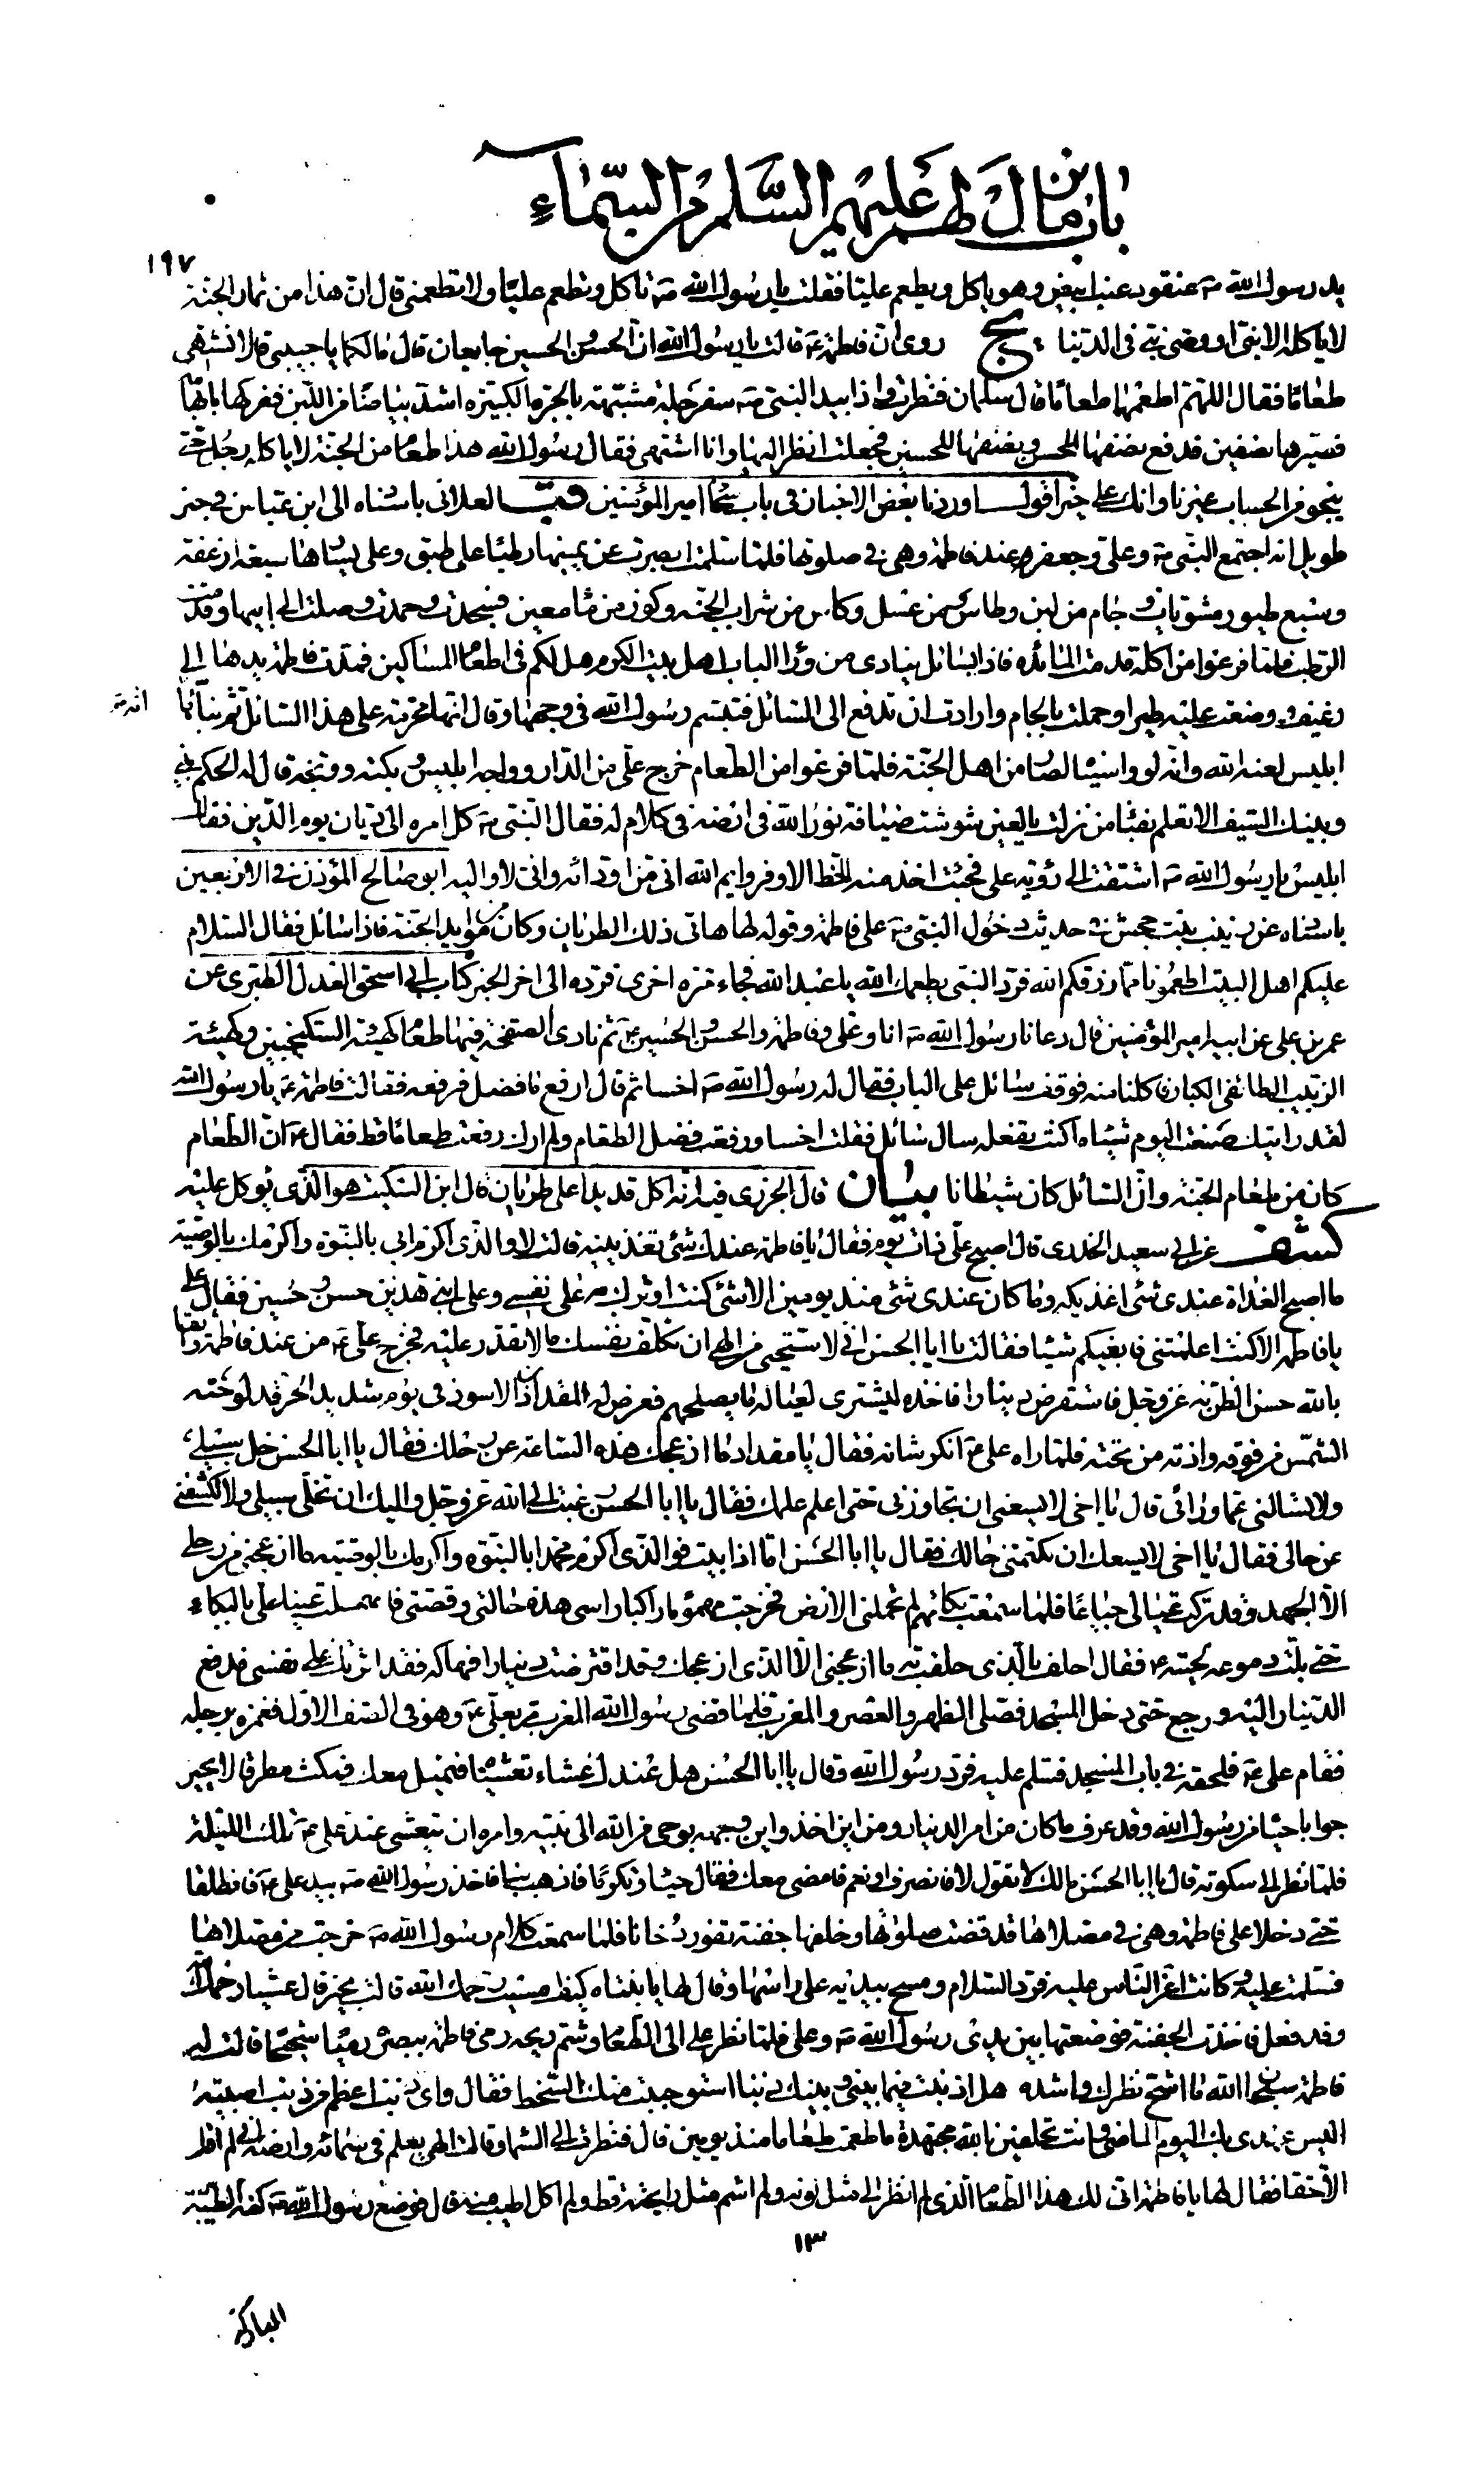 باب ما نزل لهم عليهم السلام من السماء
١٩٧
يد رسول الله ص عنقود عنب ابيض وهو ياكل ويطعم عليا فقلت يا رسول الله ص تاكل وتطعم عليا ولا تطعمني قال ان هذا من ثمار الجنة
لا ياكله الا نبي او وصي نبي في الدنيا يج روى ان فاطمة ع قالت يا رسول الله ان الحسن والحسين جايعان قال ما لكما يا حبيبي قالا نشتهي
طعاما فقال اللهم اطعمهما طعاما قال سلمان فنظرت فاذا بيد النبي ص سفرجلة مشبهة بالجرة الكبيرة اشد بياضا من اللبن ففركها بابهامه
فصيرها نصفين فدفع نصفها للحسن ونصفها للحسين فجعلت انظر اليها وانا اشتهي فقال رسول الله هذا طعام من الجنة لا ياكله رجل حتى
ينجو من الحساب غيرنا وانك على خير اقول اوردنا بعض الاخبار في باب سخاء امير المؤمنين قب العلاني باسناده الى ابن عباس في خبر
طويل انه اجتمع النبي ص وعلي وجعفر عند فاطمة وهي في صلوتها فلما سلمت ابصرت عن يمينها رطبا على طبق وعلى يسارها سبعة ارغفة
وسبع طيور مشويات وجام من لبن وطاس من عسل وكاس من شراب الجنة وكوز من ماء معين فسجدت وحمدت وصلت الى ابيها وقدمت
الرطب فلما فرغوا من اكله قدمت المائدة فاذا بسائل ينادى من وراء الباب اهل بيت الكرم هل لكم في اطعام المساكين فمدت فاطمة يدها الى
رغيف ووضعت عليه طيرا وحملت بالجام وارادت ان تدفع الى السائل فتبسم رسول الله في وجهها وقال انها محرمة على هذا السائل ثم نبانا انه
ابليس لعنه الله وانه لو واسيناه لصار من اهل الجنة فلما فرغوا من الطعام خرج علي من الدار وواجه ابليس وبكته ووبخه قال له الحكم بيني
وبينك السيف الا تعلم بفناء من نزلت يا لعين شوشت ضيافة نور الله في ارضه في كلام له فقال النبي ص كل امره الى ديان يوم الدين فقال
ابليس يا رسول الله ص اشتقت الى رؤية علي فجئت اخذ منه الحظ الاوفر وايم الله اني من اودائه واني لاواليه ابو صالح المؤذن في الاربعين
باسناده عن زينب بنت جحش في حديث دخول النبي ص على فاطمة وقوله لها هاتي ذلك الطريان وكان من موايد الجنة فاذا سائل فقال السلام
عليكم اهل البيت اطعمونا مما رزقكم الله فرد النبي يطعمك الله يا عبد الله فجاء مرة اخرى فرده الى اخر الخبر كتاب ابي اسحق العدل الطبرى عن
عمر بن علي عن ابيه امير المؤمنين قال دعانا رسول الله ص انا وعلي وفاطمة والحسن والحسين ع ثم نادى الصحفة فيها طعام كهيئة السكنجبين وكهيئة
الزبيب الطائفي الكبار فاكلنا منه فوقف سائل على الباب فقال له رسول الله ص اخسا ثم قال ارفع ما فضل فرفعه فقالت فاطمة ع يا رسول الله
لقد رايتك صنعت اليوم شيئا ما كنت تفعله سال سائل فقلت اخسا ورفعت فضل الطعام ولم ارك رفعت طعاما قط فقال ع ان الطعام
كان من طعام الجنة وان السائل كان شيطانا بيان قال الجزرى فيه انه اكل قديدا على طريان قال ابن السكيت هو الذي يوكل عليه
كشف عن ابي سعيد الخدرى قال اصبح علي ذات يوم فقال يا فاطمة عندك شئ تغذينيه قالت لا والذى اكرم ابي بالنبوة واكرمك بالوصية
ما اصبح الغداة عندى شئ اغذيكه وما كان عندى شئ منذ يومين الا شئ كنت اوثرك به على نفسي وعلى ابني هذين حسن وحسين فقال علي
يا فاطمة الا كنت اعلمتني فابغيكم شيئا فقالت يا ابا الحسن اني لاستحيي من الهي ان تكلف نفسك ما لا تقدر عليه فخرج علي ع من عند فاطمة واثقا
بالله حسن الظن به عز وجل فاستقرض دينارا فاخذه ليشترى لعياله ما يصلحهم فعرض له المقداد بن الاسود في يوم شديد الحر قد لوحته
الشمس من فوقه واذته من تحته فلما راه علي ع انكر شانه فقال يا مقداد ما ازعجك هذه الساعة عن رحلك فقال يا ابا الحسن خل سبيلي
ولا تسالني عما ورائي قال يا اخي لا يسعني ان تجاوزني حتى اعلم علمك فقال يا ابا الحسن رغبت الى الله عز وجل واليك ان تخلي سبيلي ولا تكشفني
عن حالي فقال يا اخي لا يسعك ان تكتمني حالك فقال يا ابا الحسن اما اذا ابيت فوالذى اكرم محمدا بالنبوة واكرمك بالوصية ما ازعجني من رحلي
الا الجهد وقد تركت عيالي جياعا فلما سمعت بكائهم لم تحملني الارض فخرجت مهموما راكبا راسي هذه حالتي وقصتي فانهملت عينا علي بالبكاء
حتى بلت دموعه لحيته ع فقال احلف بالذى حلفت به ما ازعجني الا الذى ازعجك وقد اقترضت دينارا فهاكه فقد اثرتك على نفسي فدفع
الدينار اليه ورجع حتى دخل المسجد فصلى الظهر والعصر والمغرب فلما قضى رسول الله المغرب مر بعلي ع وهو في الصف الاول فغمزه برجله
فقام علي ع فلحقه في باب المسجد فسلم عليه فرد رسول الله وقال يا ابا الحسن هل عندك عشاء تعشيناه فنميل معك فمكث مطرقا لا يحير
جوابا حياء من رسول الله وقد عرف ما كان من امر الدينار ومن اين اخذه واين وجهه بوحي من الله الى نبيه وامره ان يتعشى عند علي ع تلك الليلة
فلما نظر الى سكوته قال يا ابا الحسن مالك لا تقول لا فانصرف او نعم فامضى معك فقال حياء وتكرما فاذهب بنا فاخذ رسول الله ص بيد علي ع فانطلقا
حتى دخلا على فاطمة وهي في مصلاها قد قضت صلوتها وخلفها جفنة تفور دخانا فلما سمعت كلام رسول الله ص خرجت من مصلاها
فسلمت عليه وكانت اعز الناس عليه فرد السلام ومسح بيديه على راسها وقال لها يا بنتاه كيف امسيت رحمك الله قالت بخير قال عشينا رحمك الله
وقد فعل فاخذت الجفنة فوضعتها بين يدي رسول الله ص وعلي فلما نظر علي الى الطعام وشم ريحه رمى فاطمة ببصره رميا شحيحا قالت له
فاطمة سبحان الله ما اشح نظرك واشده هل اذنبت فيما بيني وبينك ذنبا استوجبت منك السخط فقال واى ذنب اعظم من ذنب اصبتيه
اليس عهدى بك اليوم الماضي وانت تحلفين بالله مجتهدة ما طعمت طعاما منذ يومين قال فنظرت الى السماء وقالت الهي يعلم في سمائه وارضه اني لم اقل
الا حقا فقال لها يا فاطمة انى لك هذا الطعام الذى لم انظر الى مثل لونه ولم اشم مثل رايحته قط ولم اكل اطيب منه قال فوضع رسول الله ص كفه الطيبة
١٣
المباركة